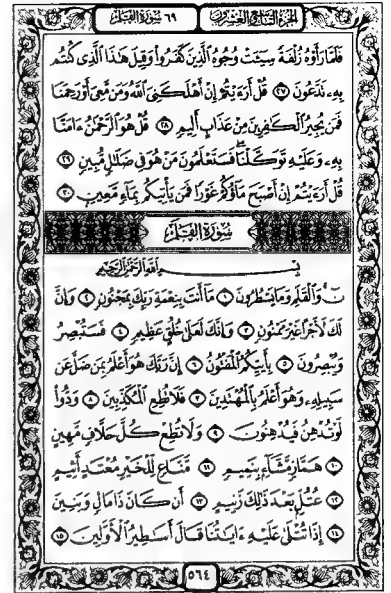 الجزء التاسع والعشرون ٦٩ سُورَةُ القَلَم
فَلَمَّا رَأَوْهُ زُلْفَةً سِيٓـَٔتْ وُجُوهُ ٱلَّذِينَ كَفَرُواْ وَقِيلَ هَٰذَا ٱلَّذِى كُنتُم
بِهِۦ تَدَّعُونَ ٢٧ قُلْ أَرَءَيْتُمْ إِنْ أَهْلَكَنِىَ ٱللَّهُ وَمَن مَّعِىَ أَوْ رَحِمَنَا
فَمَن يُجِيرُ ٱلْكَٰفِرِينَ مِنْ عَذَابٍ أَلِيمٍ ٢٨ قُلْ هُوَ ٱلرَّحْمَٰنُ ءَامَنَّا
بِهِۦ وَعَلَيْهِ تَوَكَّلْنَا فَسَتَعْلَمُونَ مَنْ هُوَ فِى ضَلَٰلٍ مُّبِينٍ ٢٩
قُلْ أَرَءَيْتُمْ إِنْ أَصْبَحَ مَآؤُكُمْ غَوْرًا فَمَن يَأْتِيكُم بِمَآءٍ مَّعِينٍ ٣٠
سُورَةُ القَلَمِ
بِسْمِ ٱللَّهِ ٱلرَّحْمَٰنِ ٱلرَّحِيمِ
نٓ وَٱلْقَلَمِ وَمَا يَسْطُرُونَ ١ مَآ أَنتَ بِنِعْمَةِ رَبِّكَ بِمَجْنُونٍ ٢ وَإِنَّ
لَكَ لَأَجْرًا غَيْرَ مَمْنُونٍ ٣ وَإِنَّكَ لَعَلَىٰ خُلُقٍ عَظِيمٍ ٤ فَسَتُبْصِرُ
وَيُبْصِرُونَ ٥ بِأَييِّكُمُ ٱلْمَفْتُونُ ٦ إِنَّ رَبَّكَ هُوَ أَعْلَمُ بِمَن ضَلَّ عَن
سَبِيلِهِۦ وَهُوَ أَعْلَمُ بِٱلْمُهْتَدِينَ ٧ فَلَا تُطِعِ ٱلْمُكَذِّبِينَ ٨ وَدُّواْ
لَوْ تُدْهِنُ فَيُدْهِنُونَ ٩ وَلَا تُطِعْ كُلَّ حَلَّافٍ مَّهِينٍ
١٠ هَمَّازٍ مَّشَّآءٍۭ بِنَمِيمٍ ١١ مَّنَّاعٍ لِّلْخَيْرِ مُعْتَدٍ أَثِيمٍ
١٢ عُتُلٍّۭ بَعْدَ ذَٰلِكَ زَنِيمٍ ١٣ أَن كَانَ ذَا مَالٍ وَبَنِينَ
١٤ إِذَا تُتْلَىٰ عَلَيْهِ ءَايَٰتُنَا قَالَ أَسَٰطِيرُ ٱلْأَوَّلِينَ ١٥
٥٦٤